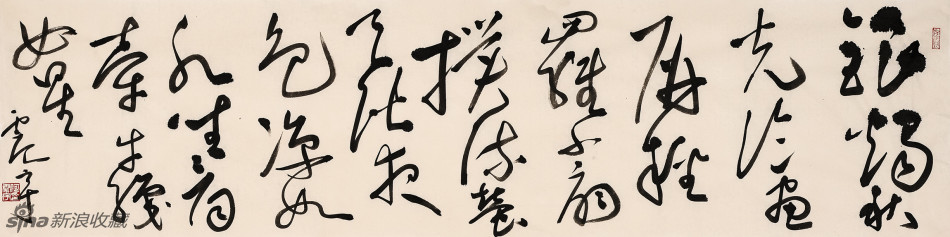 銀燭秋
光冷畫
屏輕
羅小扇
撲流螢
天階夜
色涼如
水坐看
牽牛織
女星
sina新浪收藏